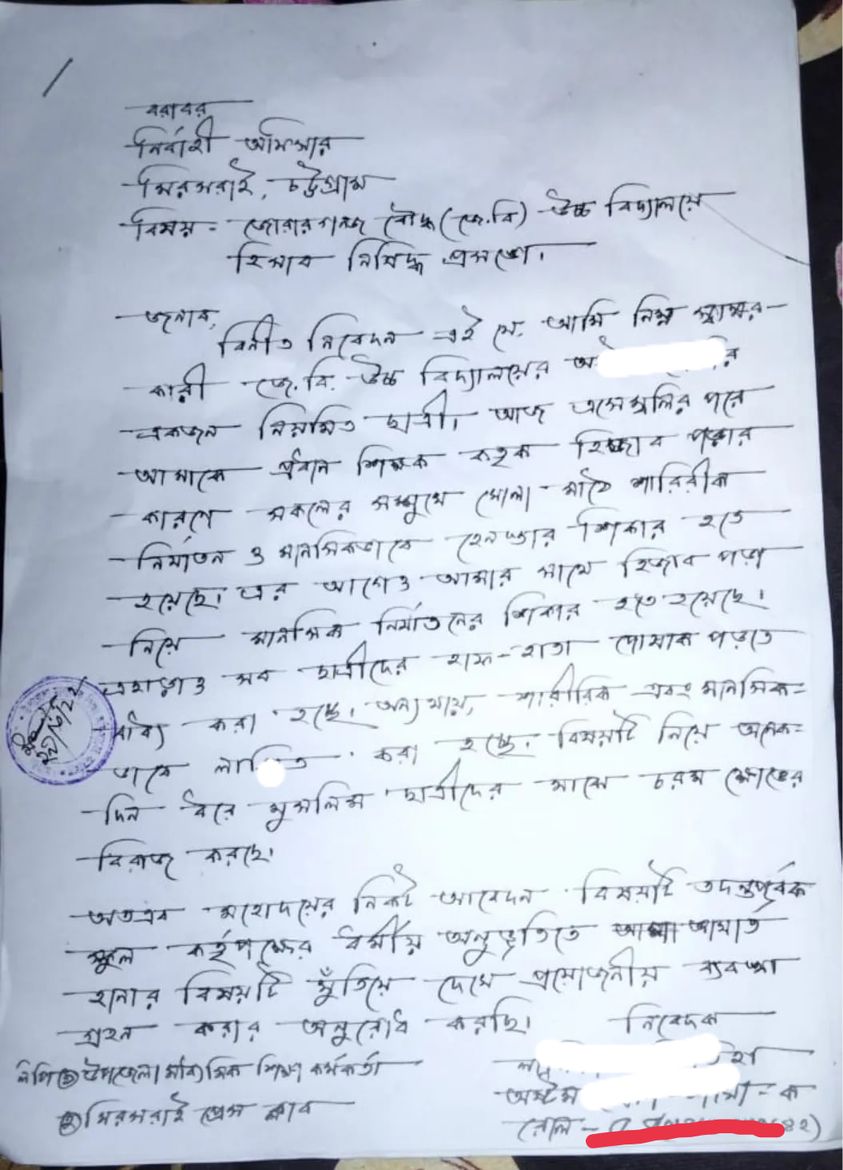 বরাবর
নির্বাহী অফিসার
মিরসরাই, চট্টগ্রাম
বিষয় - জোরারগঞ্জ বৌদ্ধ (জে.বি) উচ্চ বিদ্যালয়ে
হিজাব নিষিদ্ধ প্রসঙ্গে।
জনাব,
বিনীত নিবেদন এই যে, আমি নিম্ন স্বাক্ষর-
কারী জে.বি. উচ্চ বিদ্যালয়ের
একজন নিয়মিত ছাত্রী। আজ এসেম্বলির পরে
আমাকে প্রধান শিক্ষক কতৃক হিজাব পড়ার
কারণে সকলের সম্মুখে খোলা মাঠে শারিরীক
নির্যাতন ও মানসিকভাবে হেনস্তার শিকার হতে
হয়েছে। এর আগেও আমার সাথে হিজাব পড়া
নিয়ে মানসিক নির্যাতনের শিকার হতে হয়েছে।
এছাড়াও সব ছাত্রীদের হাফ-হাতা পোষাক পড়তে
বাধ্য করা হচ্ছে। অন্যথায়, শারীরিক এবং মানসিক-
ভাবে করা হচ্ছে। বিষয়টি নিয়ে অনেক-
দিন ধরে মুসলিম ছাত্রীদের মাঝে চরম ক্ষোভের
বিরাজ করছে।
অতএব মহোদয়ের নিকট আবেদন বিষয়টি তদন্তপূর্বক
স্কুল কর্তৃপক্ষের ধর্মীয় অনুভূতিতে আঘাত
হানার বিষয়টি খুঁতিয়ে দেখে প্রয়োজনীয় ব্যবস্থা
গ্রহন করার অনুরোধ করছি।
নিবেদক
উপজেলা মাধ্যমিক শিক্ষা কর্মকর্তা
মিরসরাই প্রেস ক্লাব
অষ্টম - ক
রোল -